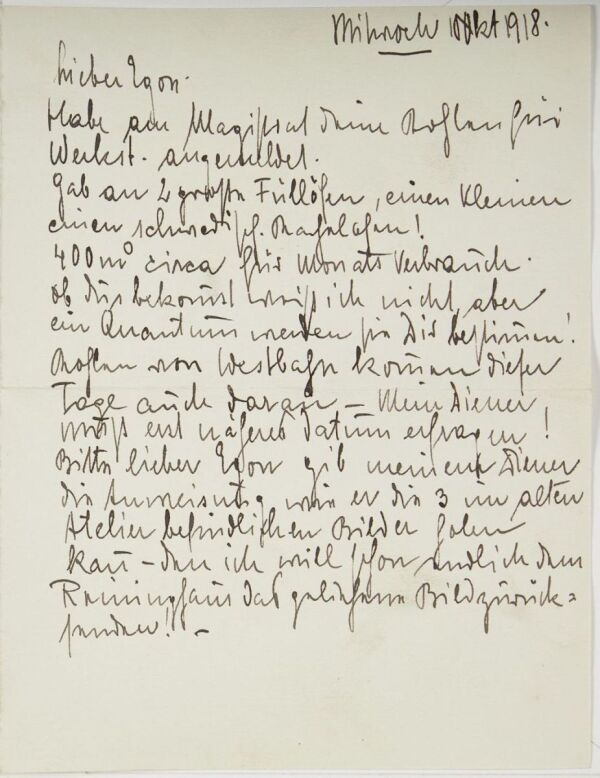 Mittwoch Okt 1918.
Lieber Egon.
Habe am Magistrat deine Kohlen für
Werkst. angemeldet.
Gab an 2 große Füllöfen, einen kleinen
einen schwedisch. Kachelofen!
400 m° circa für Monats Verbrauch.
ob du's bekomst weiß ich nicht, aber
ein Quantum werden sie Dir bestimen!
Kohlen von Westbahn komen dieser
Tage auch daran, – Mein Diener
muß erst näheres Datum erfragen!
Bitte lieber Egon gib meinem Diener
die Anweisung wie er die 3 im alten
Atelier befindlichen Bilder holen
kan – den ich will schon endlich dem
Reininghaus das geliehene Bild zurück=
senden! –